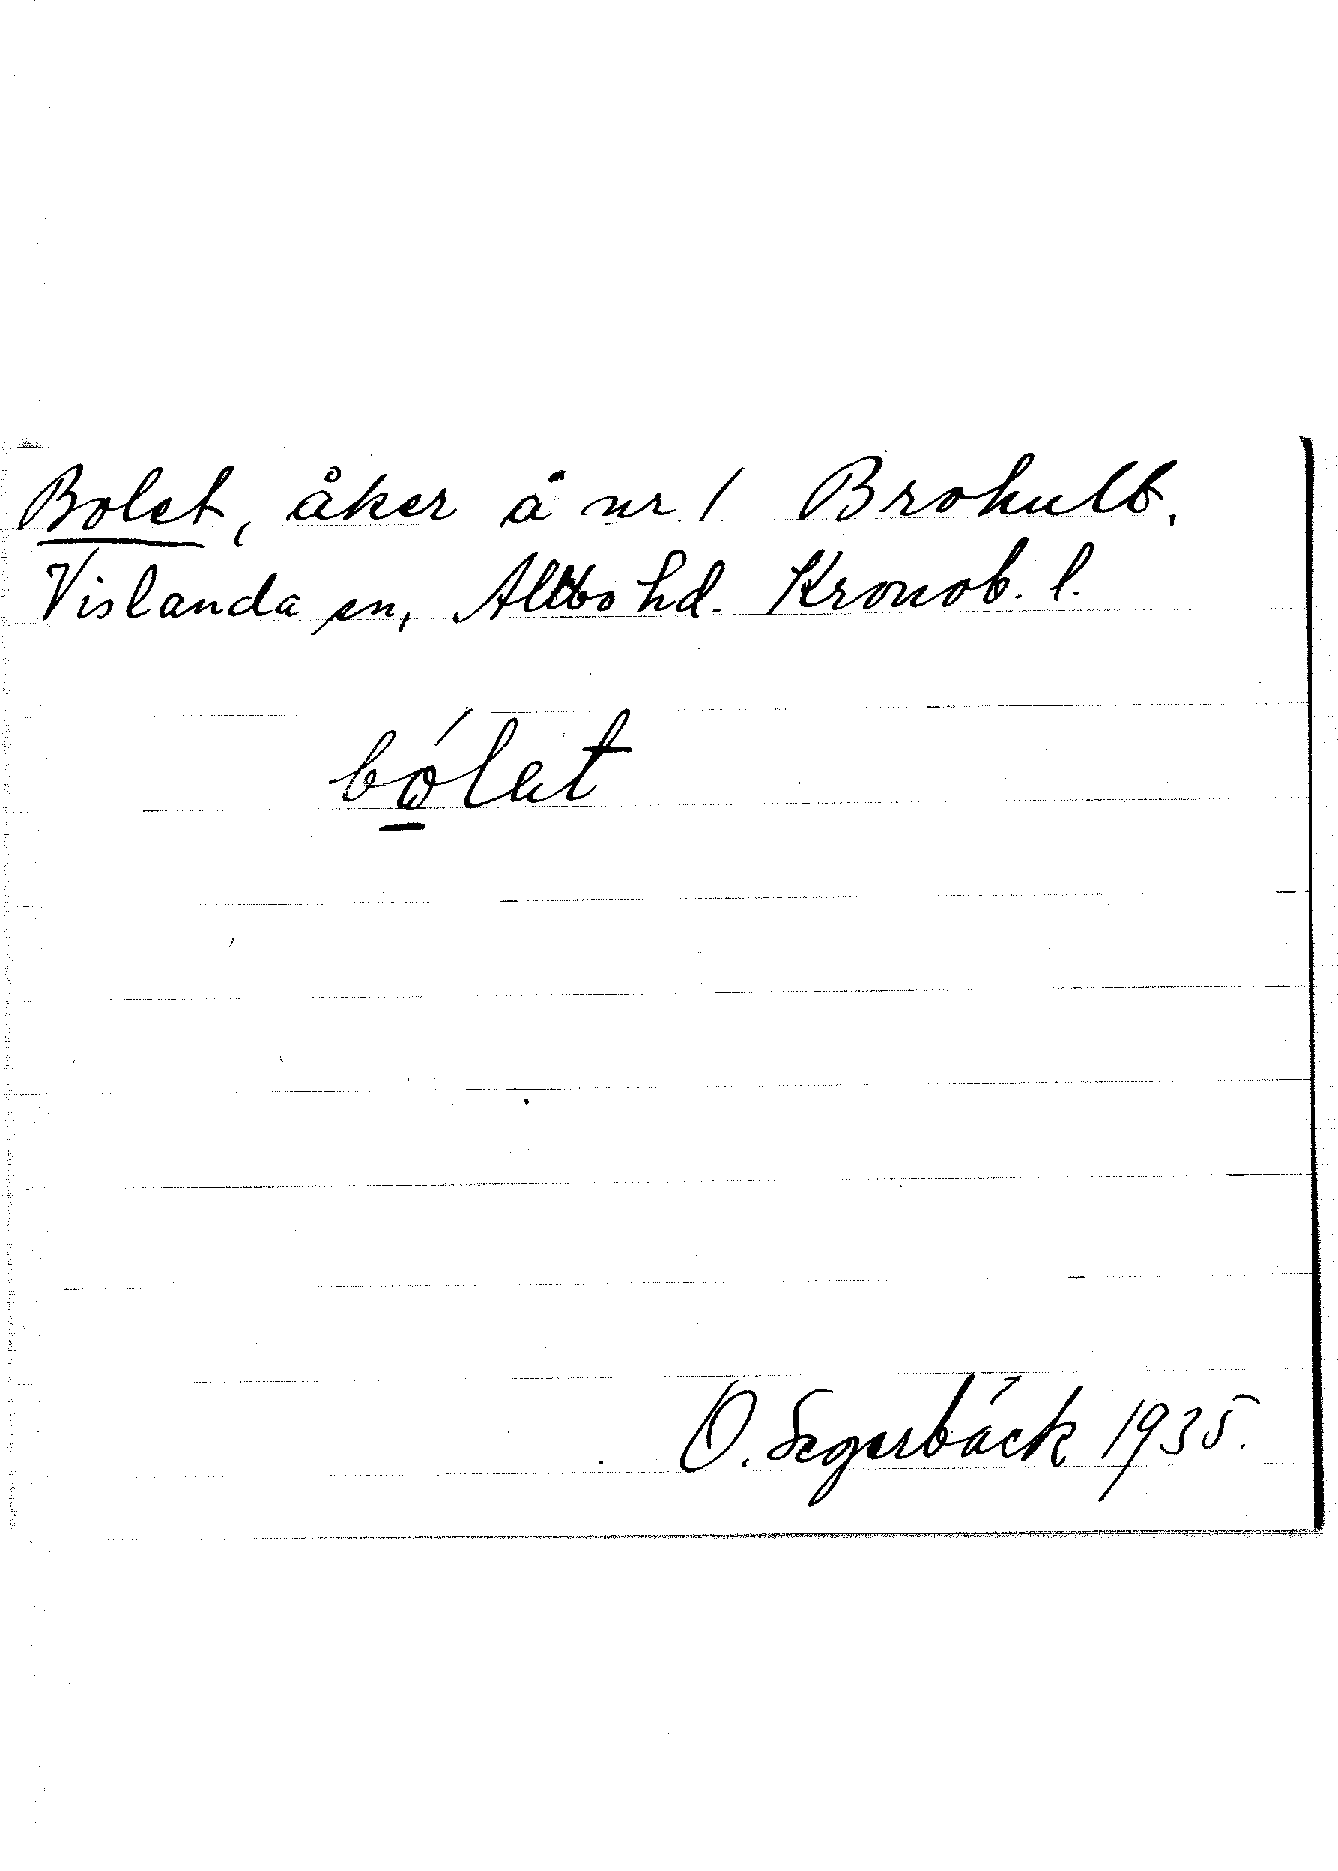 Bolet, åker å nr 1 Brohult.
Vislanda sn, Allbo hd. Kronob. l.
bólat
O. Segerbäck 1935.